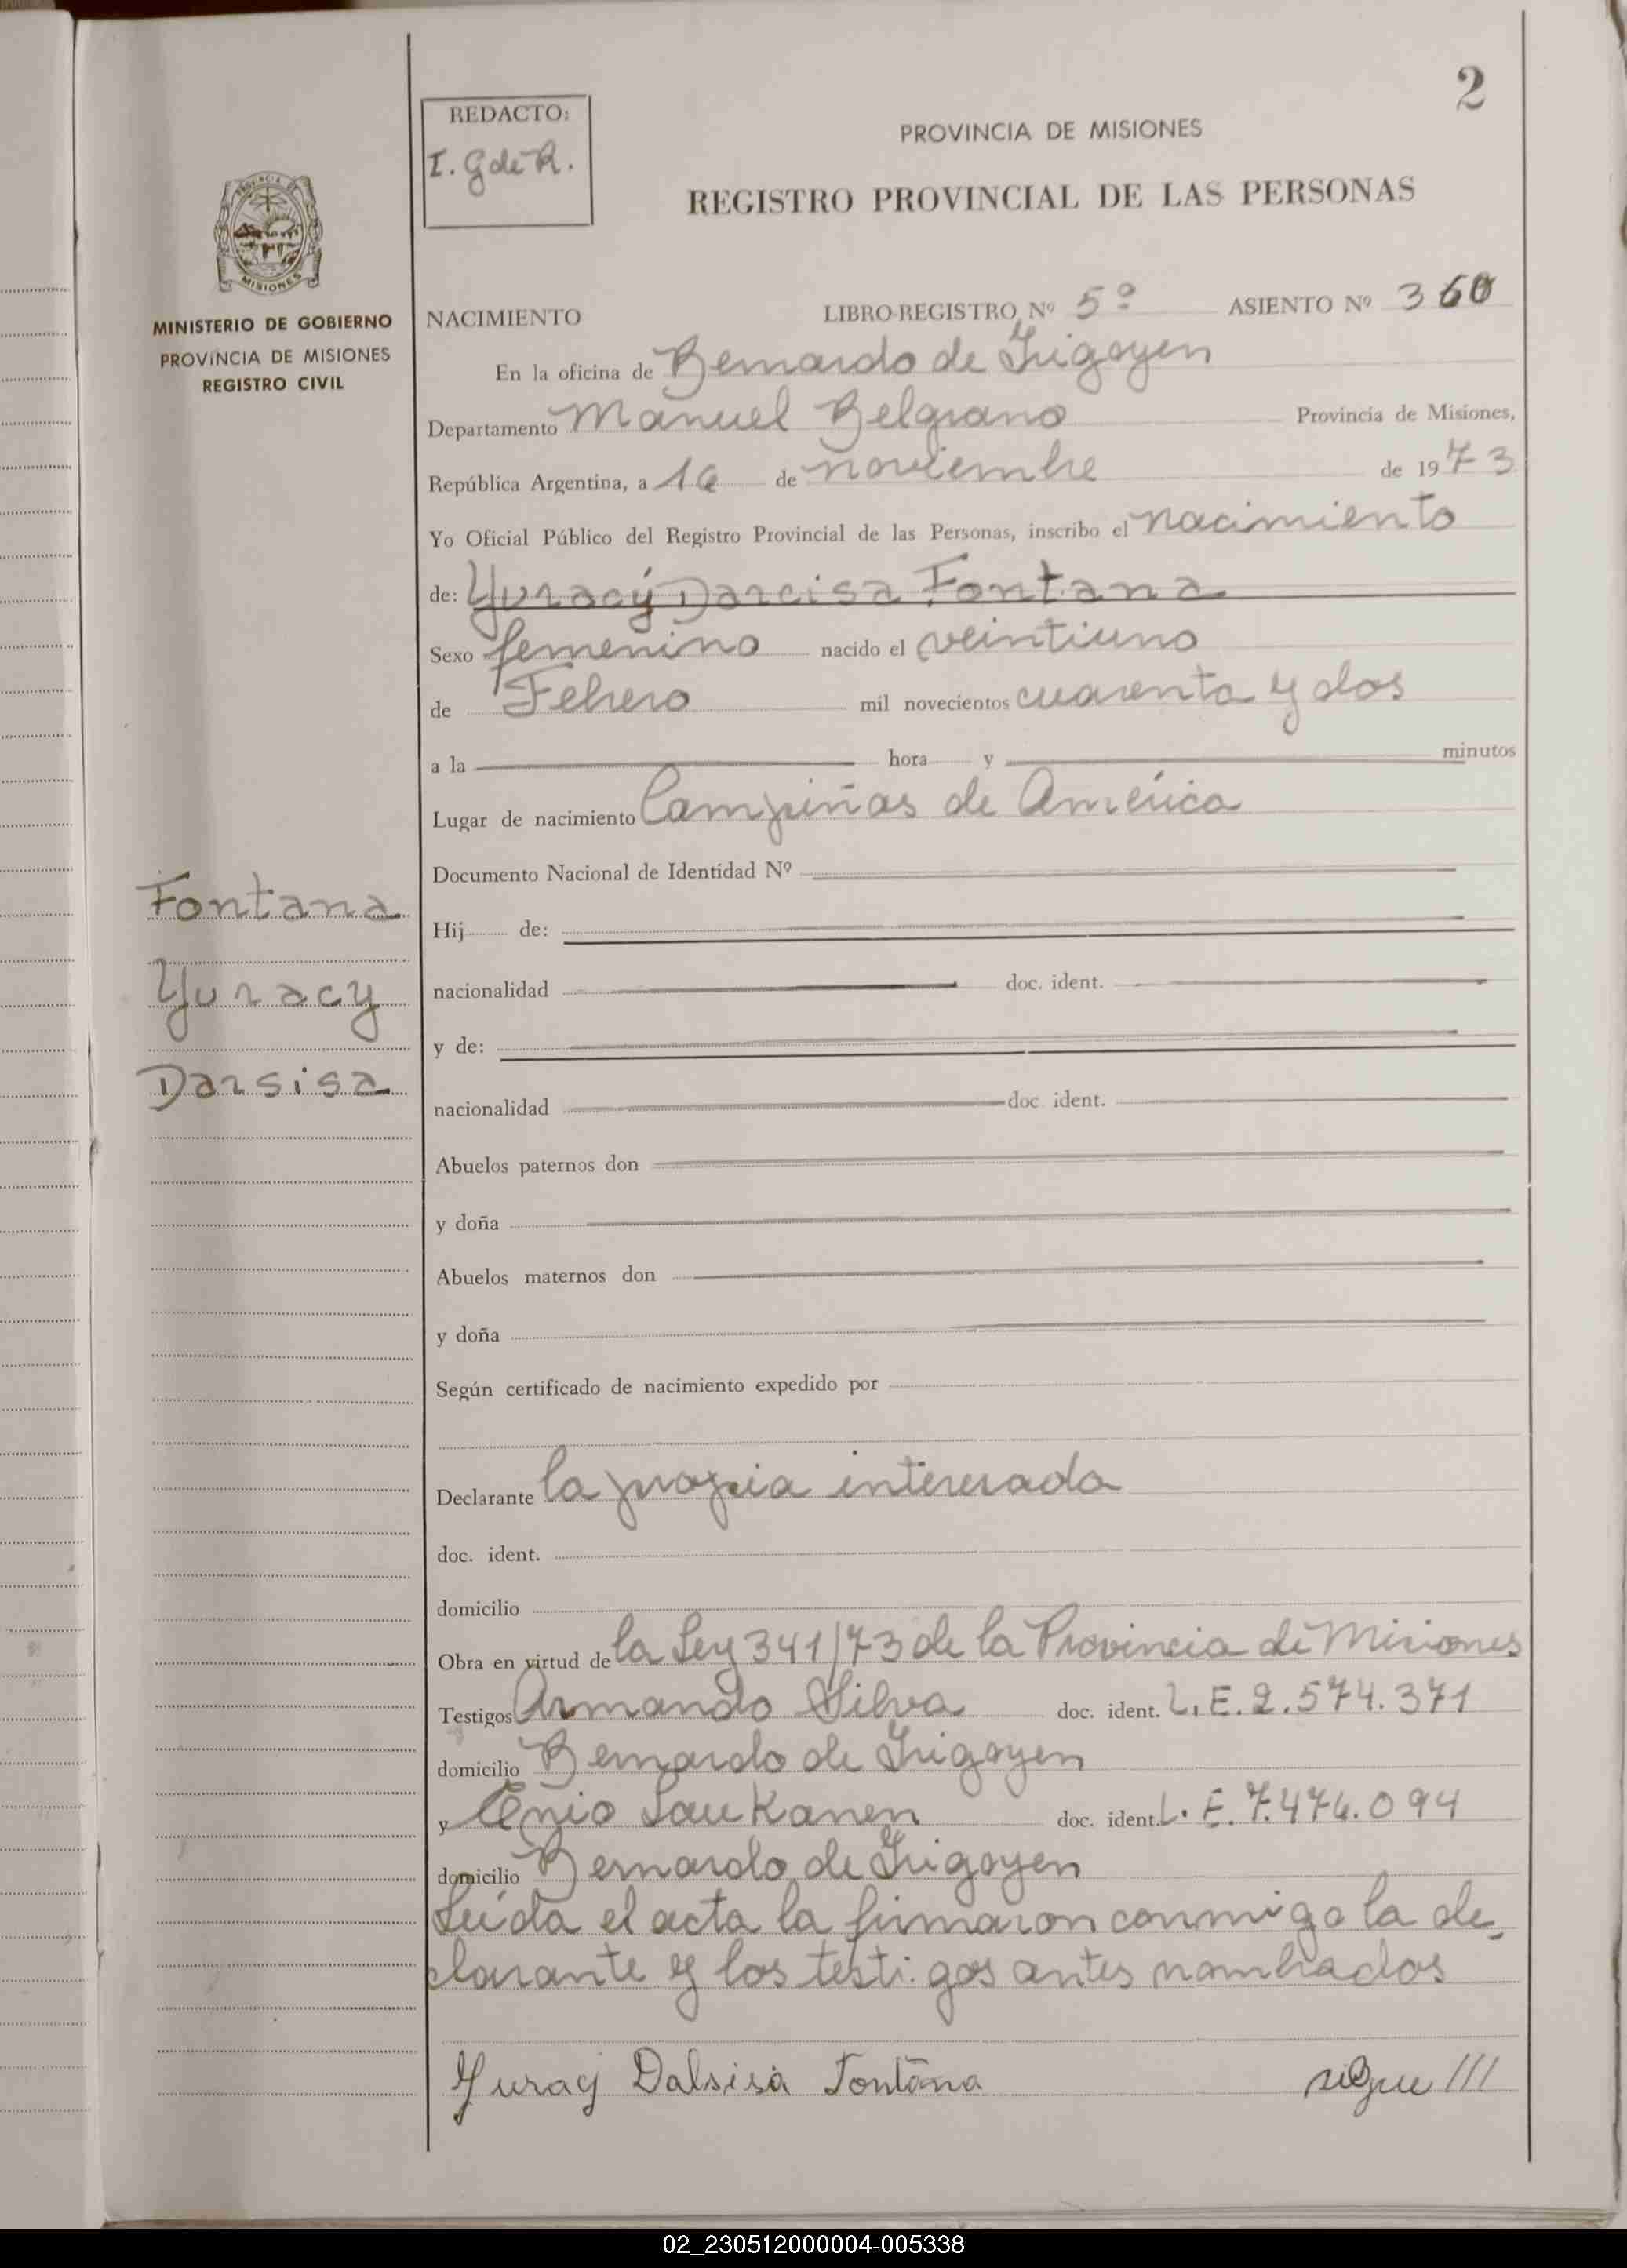 2
REDACTO:
I. G de R.
PROVINCIA DE MISIONES
REGISTRO PROVINCIAL DE LAS PERSONAS
MINISTERIO DE GOBIERNO
PROVINCIA DE MISIONES
REGISTRO CIVIL
NACIMIENTO LIBRO-REGISTRO Nº 5º ASIENTO Nº 360
En la oficina de Bernardo de Irigoyen
Departamento Manuel Belgrano Provincia de Misiones,
República Argentina, a de noviembre de 1973
Yo Oficial Público del Registro Provincial de las Personas, inscribo el nacimiento
de: Yuracý Darcisa Fontana
Sexo femenino nacido el veintiuno
de Febrero mil novecientos cuarenta y dos
a la hora y minutos
Lugar de nacimiento Campiñas de América
Documento Nacional de Identidad Nº
Hij de:
nacionalidad doc. ident.
y de:
nacionalidad doc. ident.
Abuelos paternos don
y doña
Abuelos maternos don
y doña
Según certificado de nacimiento expedido por
Declarante la propia interesada
doc. ident.
domicilio
Obra en virtud de la Ley 341/73 de la Provincia de Misiones
Testigos Armando Silva doc. ident. L.E. 2.574.371
domicilio Bernardo de Irigoyen
y Enio Laukanen doc. ident. L.E. 7.474.094
domicilio Bernardo de Irigoyen
Leída el acta la firmaron conmigo la de_
clarante y los testigos antes nombrados
Yuracy Dalsisa Fontana sigue ///
Fontana
Yuracy
Darsisa
02_230512000004-005338